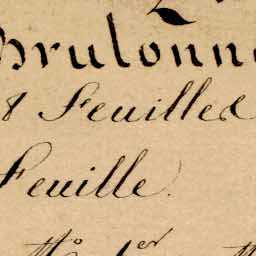 Brulonn
8 Feuilles
Feuille.